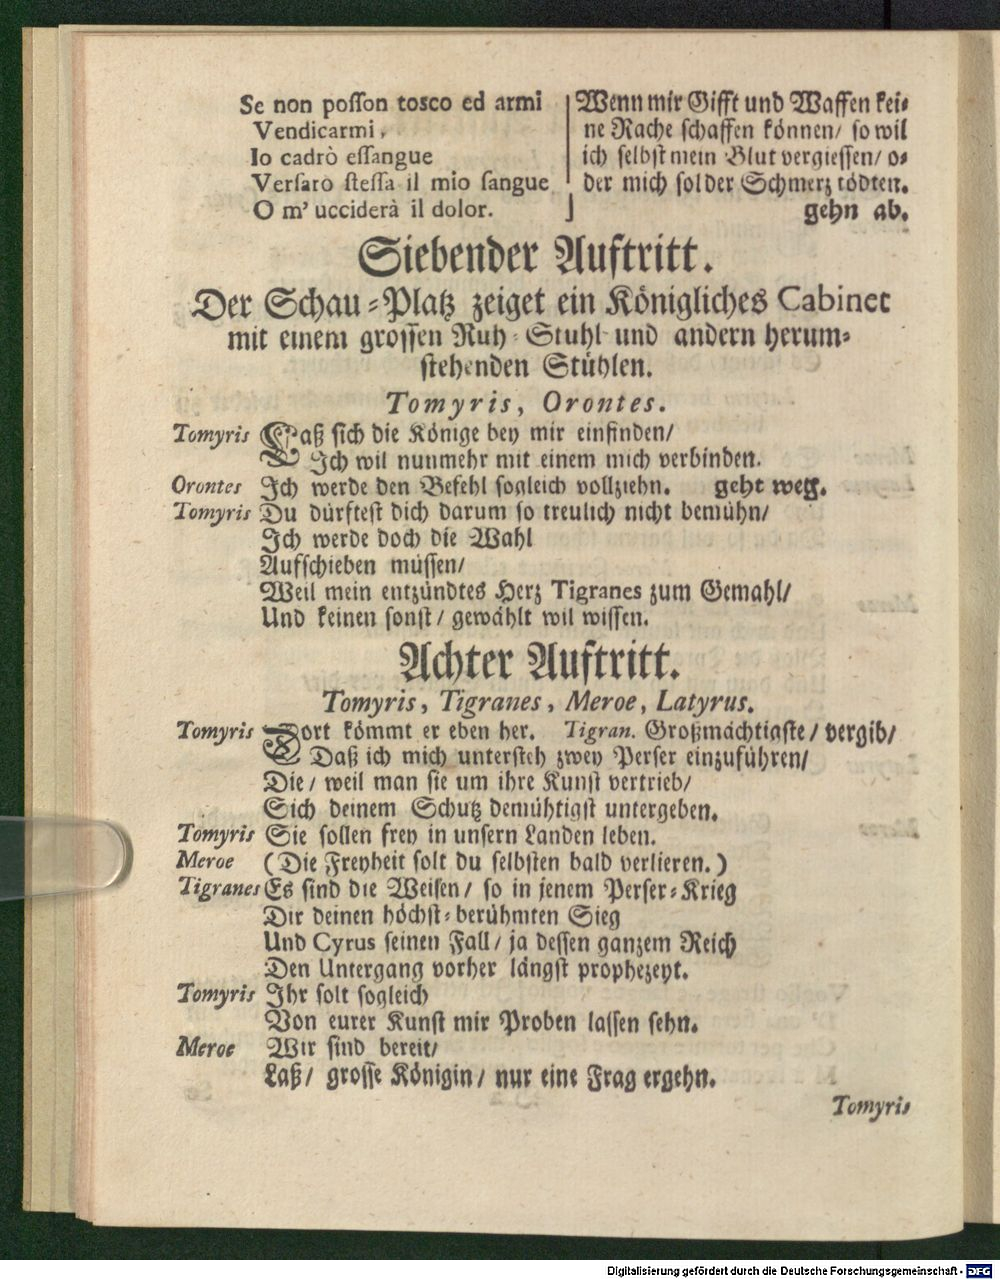 Se non posson tosco ed armi
Vendicarmi,
Io cadrò essangue
Versarò stessa il mio sangue
O m' ucciderà il dolor.
Wenn mir Gifft und Waffen kei-
ne Rache schaffen können/ so wil
ich selbst mein Blut vergiessen/ o-
der mich sol der Schmerz tödten.
gehn ab.
Siebender Auftritt.
Der Schau-Platz zeiget ein Königliches Cabinet
mit einem grossen Ruh-Stuhl und andern herum-
stehenden Stühlen.
Tomyris, Orontes.
Tomyris Laß sich die Könige bey mir einfinden/
Ich wil nunmehr mit einem mich verbinden.
Orontes Ich werde den Befehl sogleich vollziehn. geht weg.
Tomyris Du dürftest dich darum so treulich nicht bemühn/
Ich werde doch die Wahl
Aufschieben müssen/
Weil mein entzündtes Herz Tigranes zum Gemahl/
Und keinen sonst/ gewählt wil wissen.
Achter Auftritt.
Tomyris, Tigranes, Meroe, Latyrus.
Tomyris Dort kömmt er eben her. Tigran. Großmächtigste/ vergib/
Daß ich mich untersteh zwey Perser einzuführen/
Die/ weil man sie um ihre Kunst vertrieb/
Sich deinem Schutz demühtigst untergeben.
Tomyris Sie sollen frey in unsern Landen leben.
Meroe (Die Freyheit solt du selbsten bald verlieren.)
Tigranes Es sind die Weisen/ so in jenem Perser-Krieg
Dir deinen höchst-berühmten Sieg
Und Cyrus seinen Fall/ ja dessen ganzem Reich
Den Untergang vorher längst prophezeyt.
Tomyris Ihr solt sogleich
Von eurer Kunst mir Proben lassen sehn.
Meroe Wir sind bereit/
Laß/ grosse Königin/ nur eine Frag ergehn.
Tomyris
Digitalisierung gefördert durch die Deutsche Forschungsgemeinschaft - DFG